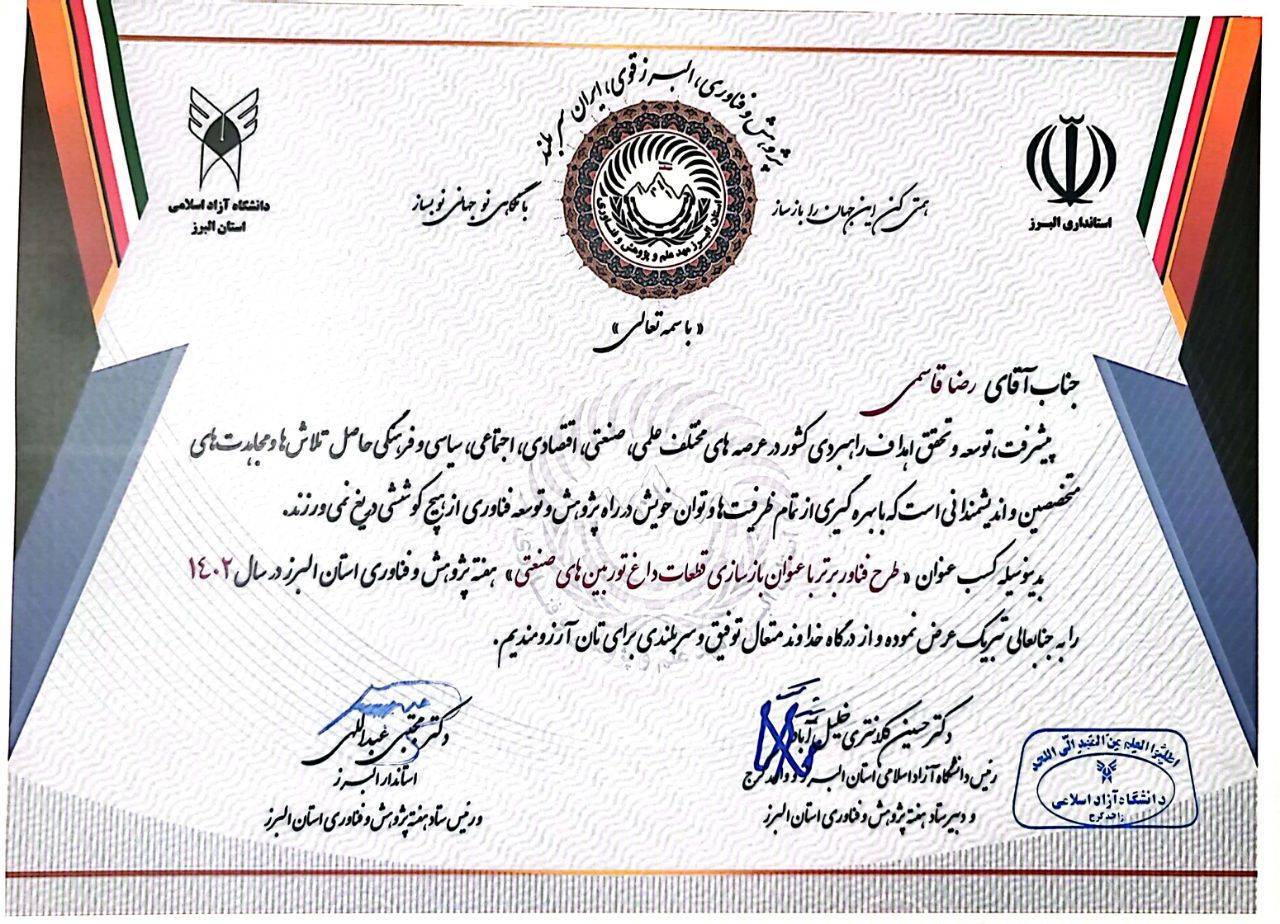 پژوهش و فناوری، البرز قوی، ایران سربلند
دانشگاه آزاد اسلامی
استان البرز
استانداری البرز
همتی کن این جهان را باز ساز
با نگاهی نو جهانی نو بساز
استان البرز مهد علم و پژوهش و فناوری
«باسمه تعالی»
جناب آقای رضا قاسمی
پیشرفت، توسعه و تحقق اهداف راهبردی کشور در عرصه های مختلف علمی، صنعتی، اقتصادی، اجتماعی، سیاسی و فرهنگی حاصل تلاش ها و مجاهدت های
متخصصین و اندیشمندانی است که با بهره گیری از تمام ظرفیت ها و توان خویش در راه پژوهش و توسعه فناوری از هیچ کوششی دریغ نمی ورزند.
بدینوسیله کسب عنوان «طرح فناور برتر با عنوان بازسازی قطعات داغ توربین های صنعتی» هفته پژوهش و فناوری استان البرز در سال ۱۴۰۲
را به جنابعالی تبریک عرض نموده و از درگاه خداوند متعال توفیق و سربلندی برای تان آرزومندیم.
دکتر حسین کلانتری خلیل آباد
رئیس دانشگاه آزاد اسلامی استان البرز و واحد کرج
و دبیر ستاد هفته پژوهش و فناوری استان البرز
دکتر مجتبی عبداللهی
استاندار البرز
و رئیس ستاد هفته پژوهش و فناوری استان البرز
اطلبوا العلم من المهد الی اللحد
دانشگاه آزاد اسلامی
واحد کرج